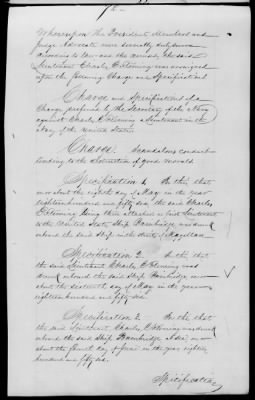 Whereupon the President Members and
Judge Advocate were severally duly sworn
according to law and the accused, the said
Lieutenant Charles E. Fleming was arraigned
upon the following Charge and Specifications
Charge and Specifications of a
Charge preferred by the Secretary of the Navy
against Charles E. Fleming a Lieutenant in the
Navy of the United States.
Charge: Scandalous conduct
tending to the destruction of good morals.
Specification 1. In this, that
on or about the eighth day of May in the year
eighteen hundred and fifty six, the said Charles
E. Fleming being then attached as first Lieutenant
to the United States Ship Bainbridge was drunk
on board the said Ship in the Strait of Magellan.
Specification 2. In this that
the said Lieutenant Charles E. Fleming was
drunk on board the said Ship Bainbridge, on or
about the sixteenth day of May in the year
eighteen hundred and fifty six.
Specification 3. In this that
the said Lieutenant Charles E. Fleming was drunk
on board the said Ship Bainbridge at sea on or
about the first day of June in the year eighteen
hundred and fifty six.
Specification